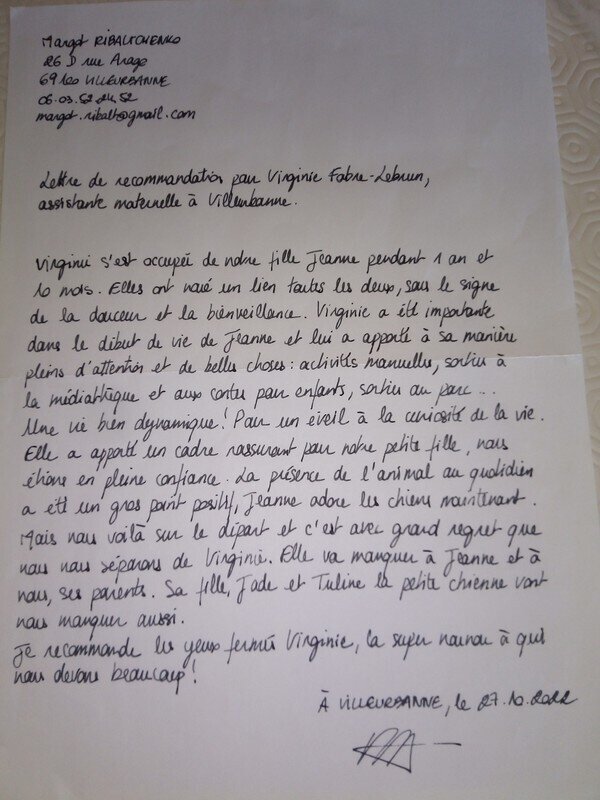 Margot RIBALTCHENKO
26 D rue Arago
69100 VILLEURBANNE
06.03.52.24.52
margot.ribalt@gmail.com
Lettre de recommandation pour Virginie Fabre-Lebrun,
assistante maternelle à Villeurbanne.
Virginie s'est occupée de notre fille Jeanne pendant 1 an et
10 mois. Elles ont noué un lien toutes les deux, sous le signe
de la douceur et la bienveillance. Virginie a été importante
dans le début de vie de Jeanne et lui a apporté à sa manière
pleins d'attention et de belles choses : activités manuelles, sorties à
la médiathèque et aux contes pour enfants, sorties au parc...
Une vie bien dynamique ! Pour un éveil à la curiosité de la vie.
Elle a apporté un cadre rassurant pour notre petite fille, nous
étions en pleine confiance. La présence de l'animal au quotidien
a été un gros point positif, Jeanne adore les chiens maintenant.
Mais nous voilà sur le départ et c'est avec grand regret que
nous nous séparons de Virginie. Elle va manquer à Jeanne et à
nous, ses parents. Sa fille, Jade et Tuline la petite chienne vont
nous manquer aussi.
Je recommande les yeux fermés Virginie, la super nounou à qui
nous devons beaucoup !
À VILLEURBANNE, le 27.10.2022